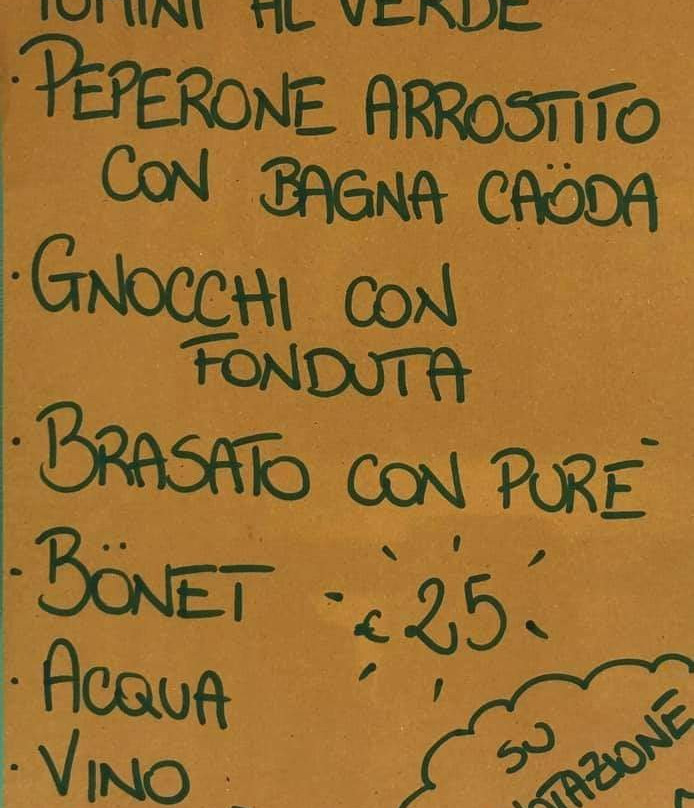 TOMINI AL VERDE
· PEPERONE ARROSTITO
CON BAGNA CAÖDA
· GNOCCHI CON
FONDUTA
· BRASATO CON PURE`
- BÖNET
€ 25
· ACQUA
· VINO
SU